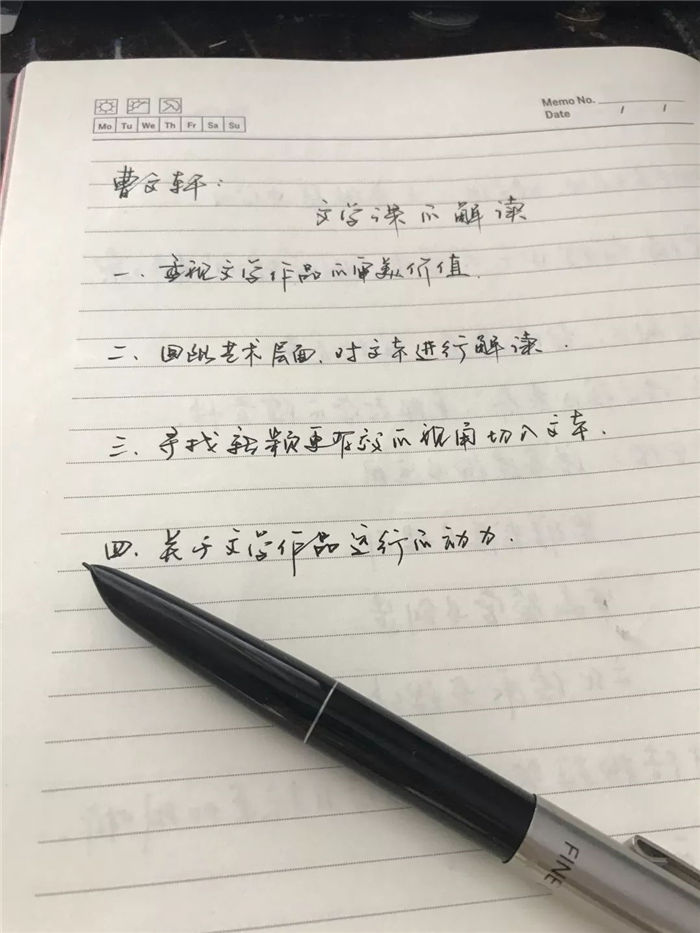 Memo No.
Mo Tu We Th Fr Sa Su
Date / /
曹文轩:
文学课的解读
一、重视文学作品的审美价值.
二、回到艺术层面,对文本进行解读.
三、寻找新颖更有效的视角切入文本.
四、关于文学作品运行的动力.
FINE